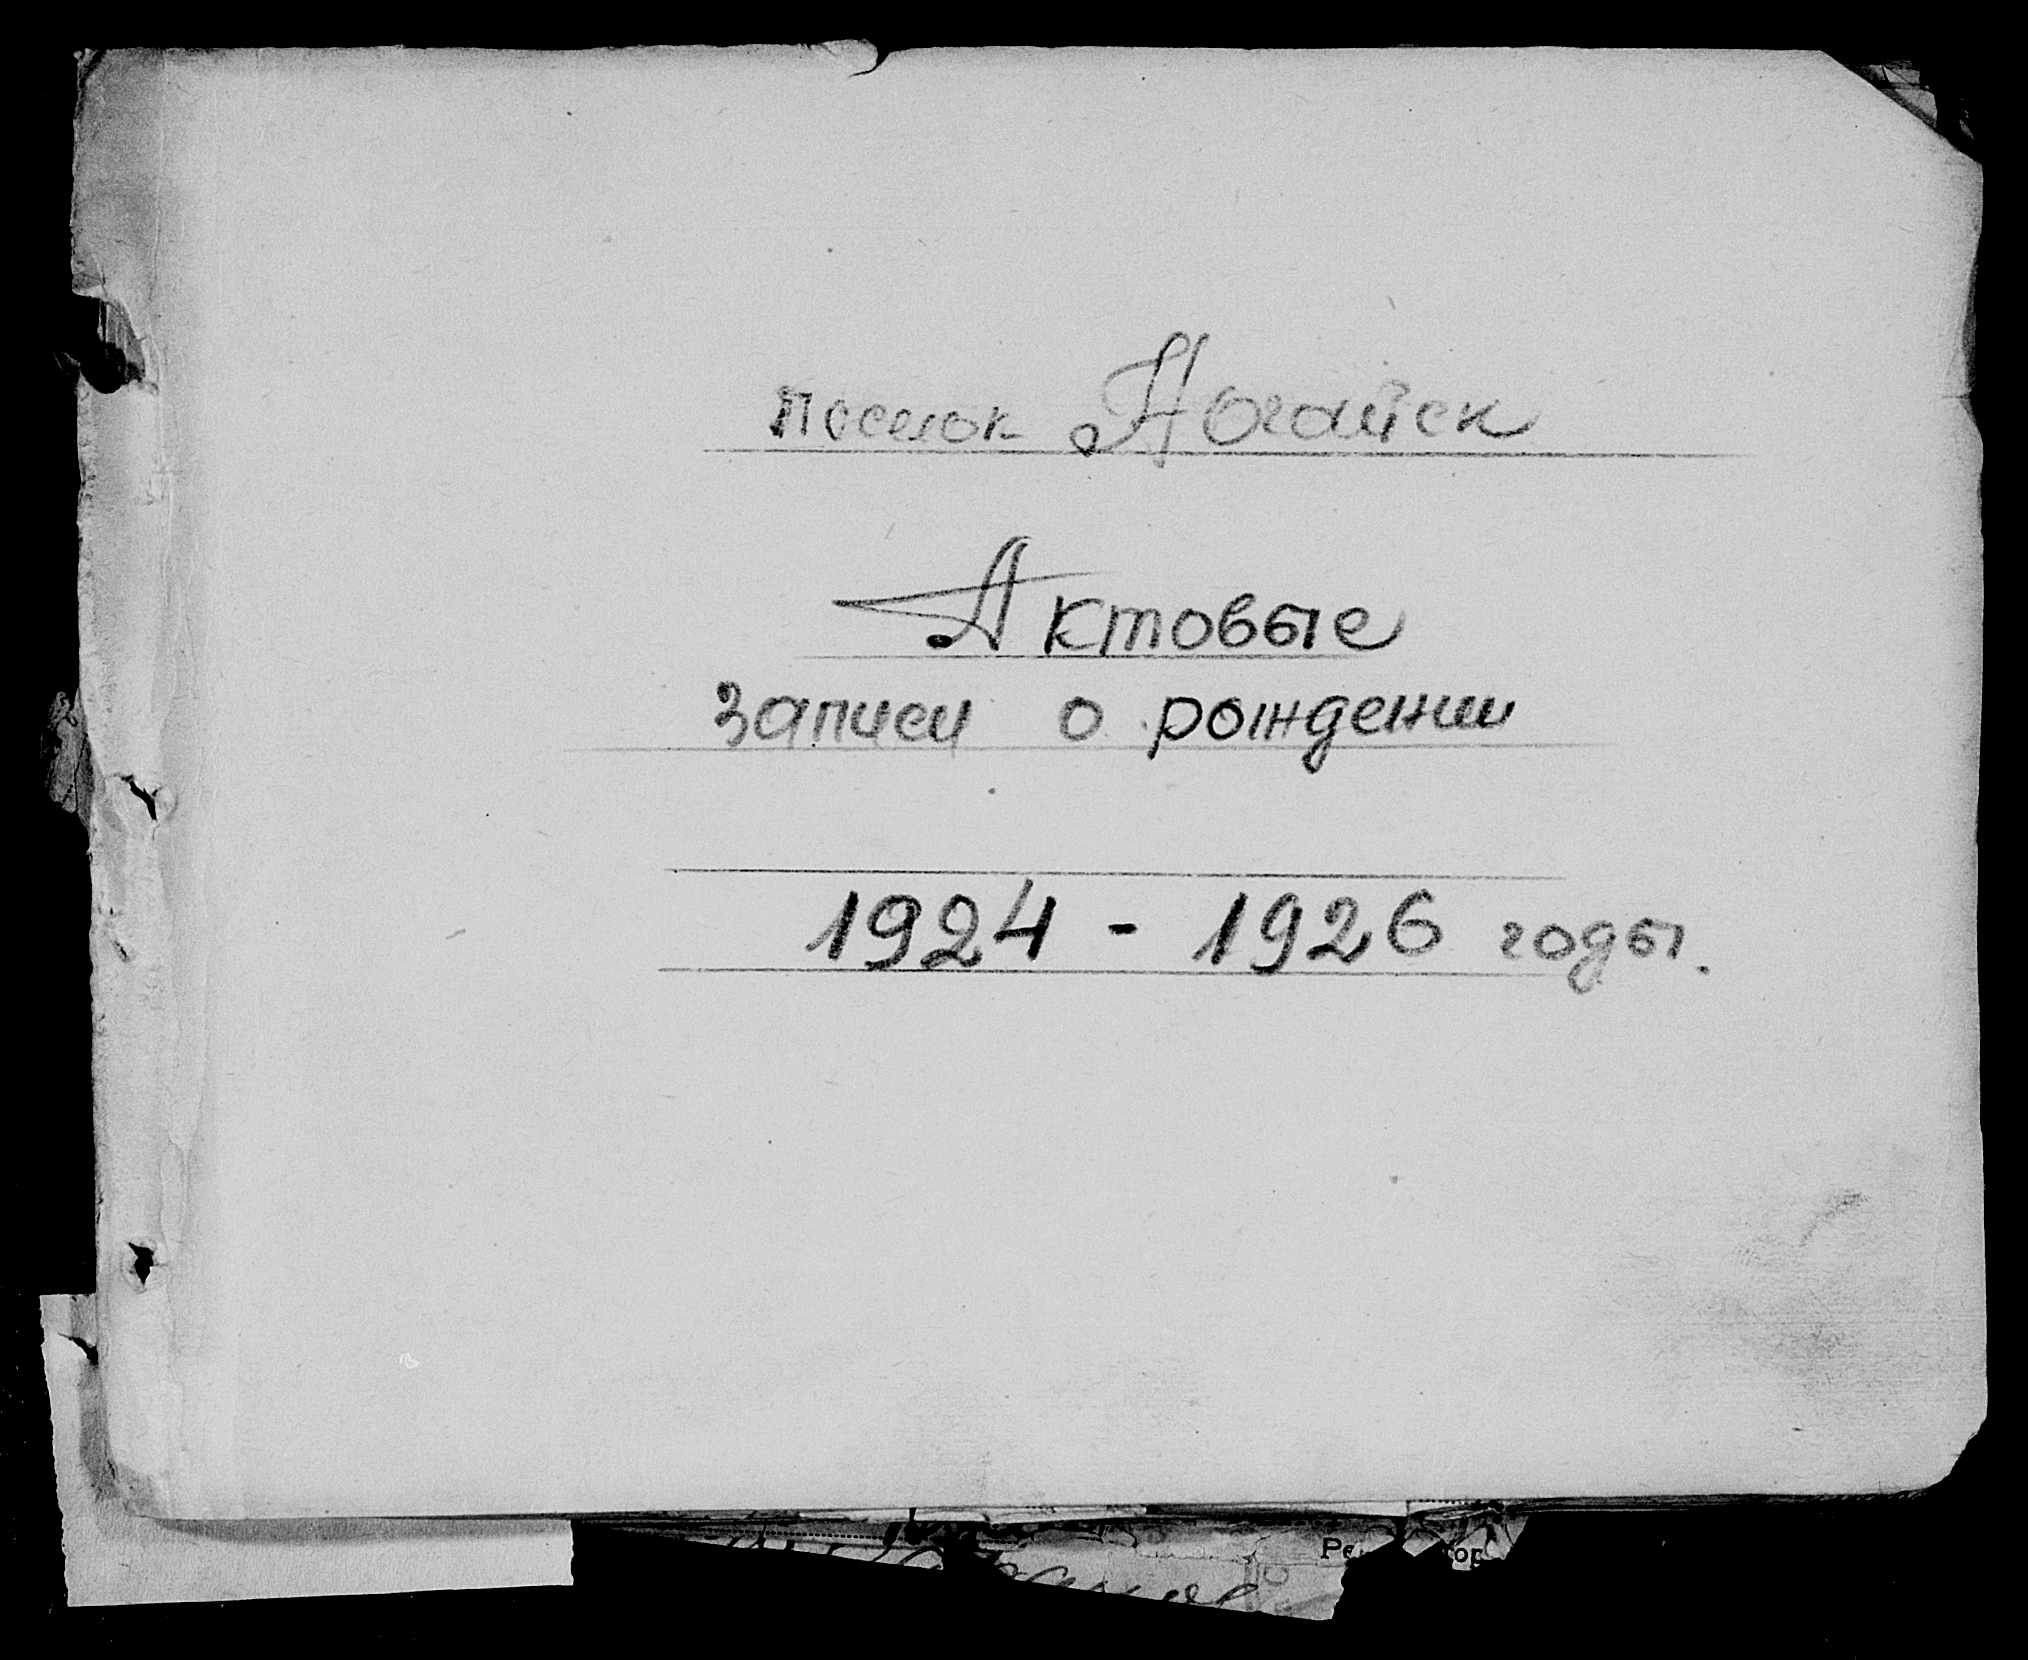 поселок Ногайск
Актовые
записи о рождении
1924 - 1926 годы.